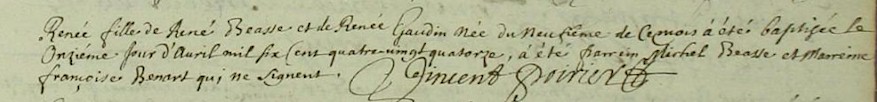 Renée fille de René Beasse et de Renée Gaudin née du neufieme de ce mois a été baptizée le
onzieme jour d'avril mil six cent quatre vingt quatorze, a été parrein Michel Beasse et marreine
françoise Benart qui ne signent. Vincent Poirier